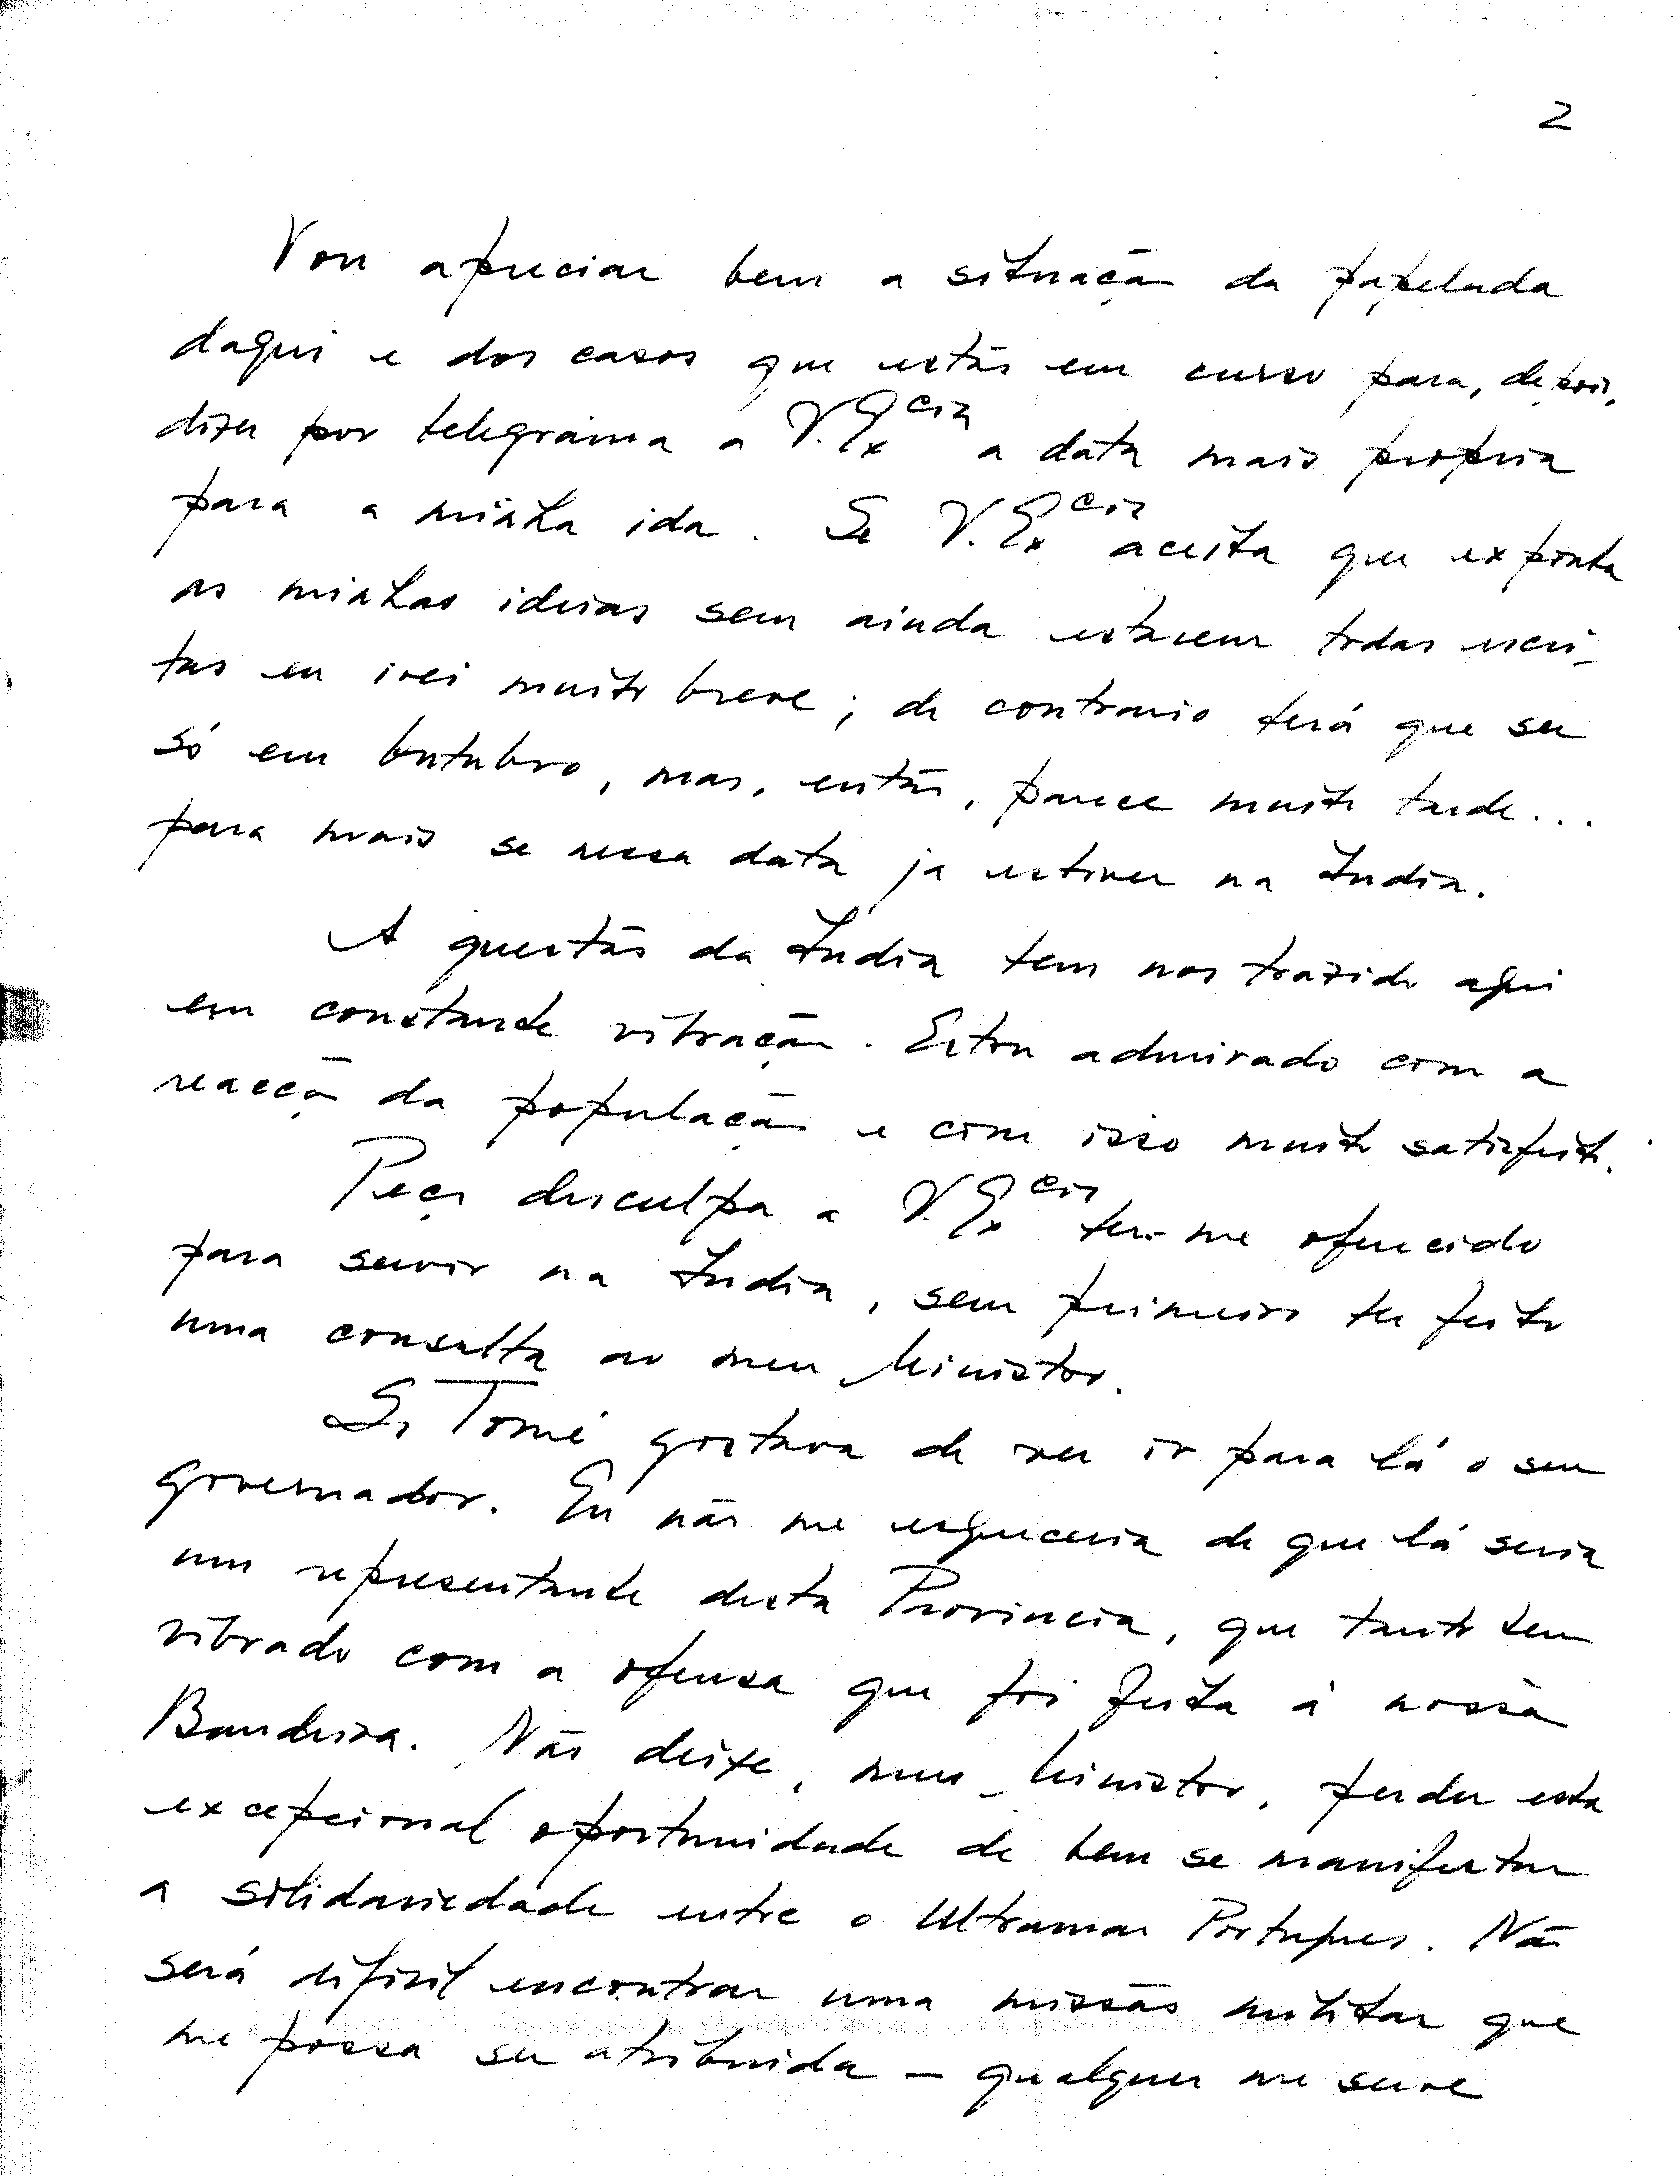 2
Vou apreciar bem a situação da papelada
daqui e dos casos que estão em curso para, depois,
dizer por telegrama a V. Excia a data mais propria
para a minha ida. Se V. Excia aceita que exponha
as minhas ideias sem ainda estarem todas escri-
tas eu irei muito breve; de contrario terá que ser
só em Outubro, mas, então, parece muito tarde...
para mais se nessa data ja estiver na India.
A questão da India tem nos trazido aqui
em constante vibração. Estou admirado com a
reacção da população e com isso muito satisfeito.
Peço desculpa a V. Excia ter-me oferecido
para servir na India, sem primeiro ter feito
uma consulta ao meu Ministro.
S. Tomé gostava de ver ir para lá o seu
governador. Eu não me esqueceria de que lá seria
um representante desta Provincia, que tanto tem
vibrado com a ofensa que foi feita á nossa
Bandeira. Não deixe, meu Ministro, perder esta
excepcional oportunidade de bem se manifestar
a solidariedade entre o Ultramar Portugues. Não
será dificil encontrar uma missão militar que
me possa ser atribuida — qualquer me serve